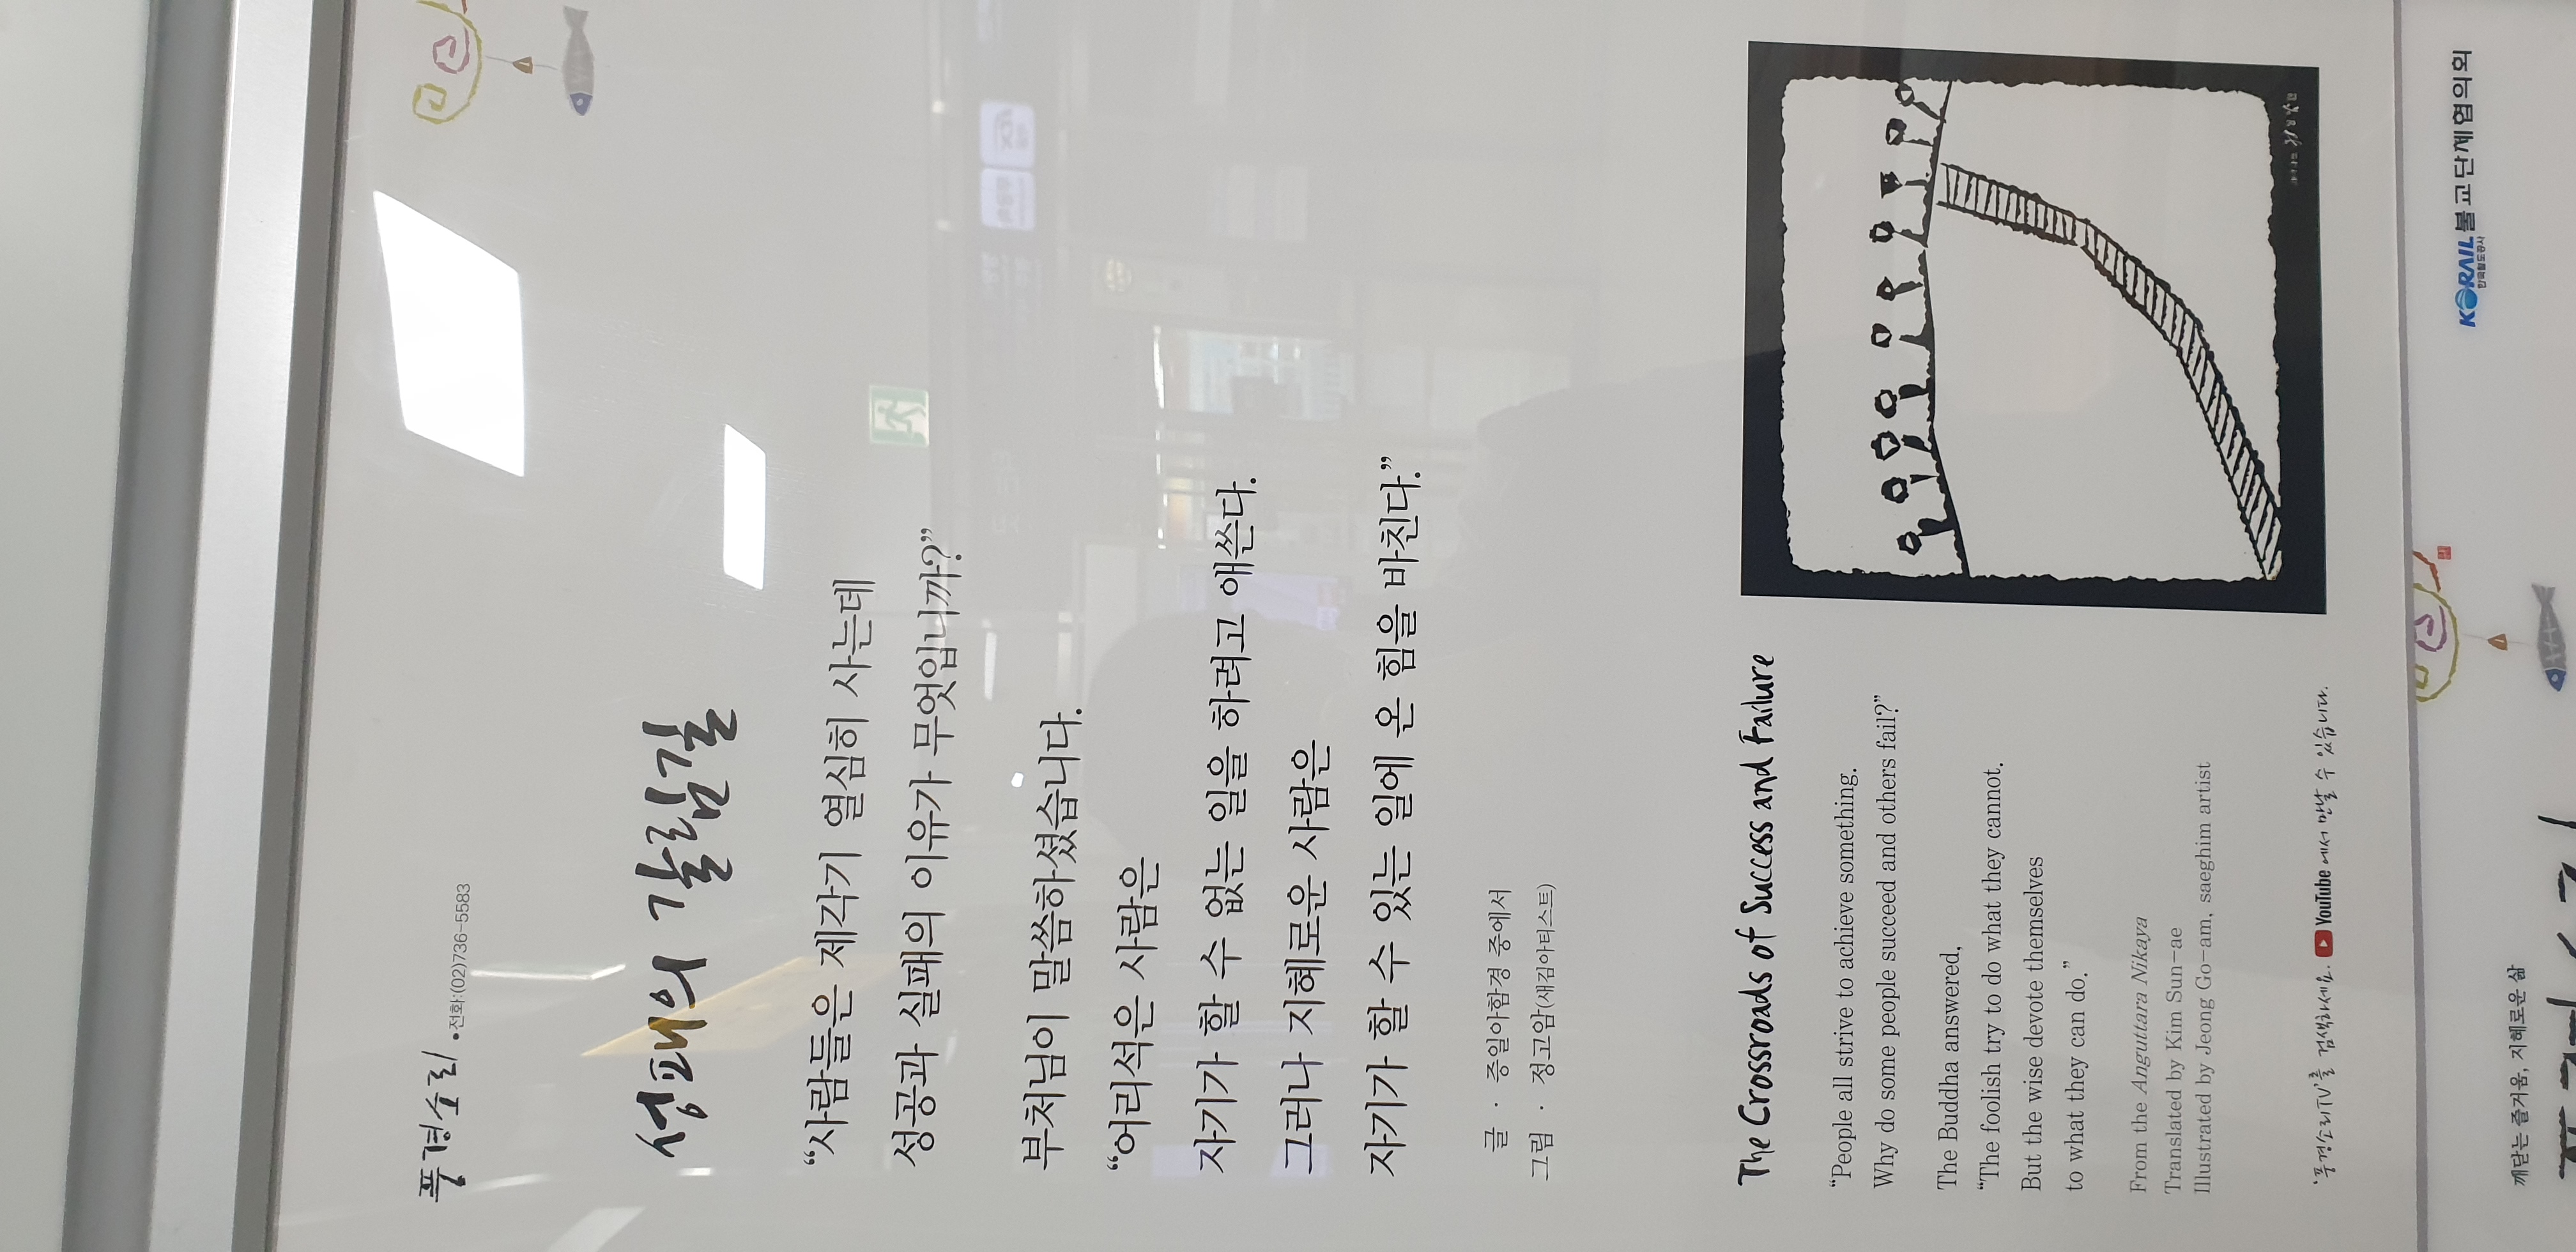 풍경소리 • 전화:(02)736-5583
성패의 갈림길
“사람들은 제각기 열심히 사는데
성공과 실패의 이유가 무엇입니까?”
부처님이 말씀하셨습니다.
“어리석은 사람은
자기가 할 수 없는 일을 하려고 애쓴다.
그러나 지혜로운 사람은
자기가 할 수 있는 일에 온 힘을 바친다.”
글 · 증일아함경 중에서
그림 · 정고암(새김아티스트)
The Crossroads of Success and Failure
“People all strive to achieve something.
Why do some people succeed and others fail?”
The Buddha answered,
“The foolish try to do what they cannot.
But the wise devote themselves
to what they can do.”
From the Anguttara Nikaya
Translated by Kim Sun-ae
Illustrated by Jeong Go-am, saeghim artist
'풍경소리TV'를 검색하세요. YouTube에서 만날 수 있습니다.
KORAIL 불교단체협의회
한국철도공사
깨닫는 즐거움, 지혜로운 삶